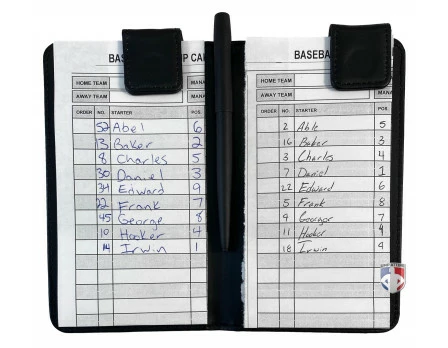 BAS P CA
HOME TEAM MANA
AWAY TEAM MANA
ORDER NO. STARTER POS.
52 Abel 6
13 Baker 2
8 Charles 5
30 Daniel 3
34 Edward 9
22 Frank 7
45 George 8
10 Hooker 4
14 Irwin 1
BASEBA
HOME TEAM
AWAY TEAM MANA
ORDER NO. STARTER POS.
2 Able 5
16 Baker 3
3 Charles 4
7 Daniel 1
22 Edward 6
5 Frank 8
9 George 7
11 Hooker 9
18 Irwin